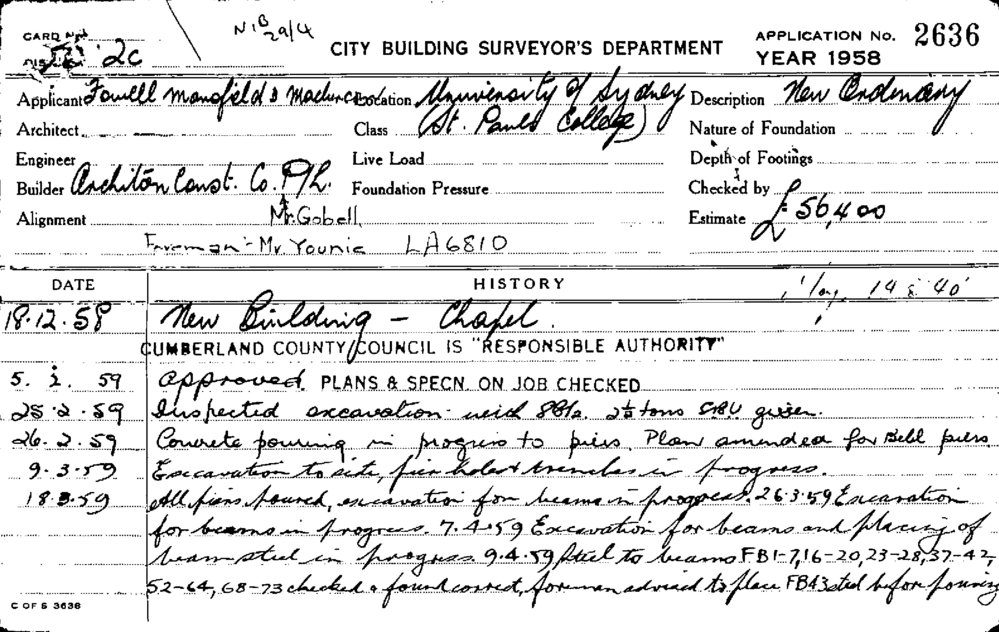 CARD No. N1B 29/4
2C CITY BUILDING SURVEYOR'S DEPARTMENT APPLICATION No. 2636
YEAR 1958
Applicant Fowell Mansfield & Maclurcan Location University of Sydney Description New Ordinary
Architect Class (St. Pauls College) Nature of Foundation
Engineer Live Load Depth of Footings
Builder Architon Const. Co. P/L. Foundation Pressure Checked by
Alignment Mr. Gobell Estimate £56,400
Foreman - Mr Younie LA6810
DATE HISTORY
18.12.58 New Building - Chapel.
CUMBERLAND COUNTY COUNCIL IS "RESPONSIBLE AUTHORITY"
5. 2. 59 Approved. PLANS & SPECN. ON JOB CHECKED
25.2.59 Inspected excavation with 2½ tons given.
26.2.59 Concrete pouring in progress to piers. Plan amended for Bell piers.
9.3.59 Excavation to site, pier holes & trenches in progress.
18.3.59 All piers poured, excavation for beams in progress. 26.3.59 Excavation
for beams in progress. 7.4.59 Excavation for beams and placing of
beam steel in progress. 9.4.59 Steel to beams FB1-7, 16-20, 23-28, 37-42,
52-64, 68-73 checked & found correct, foreman advised to place FB43 steel before pouring
C OF S 3636